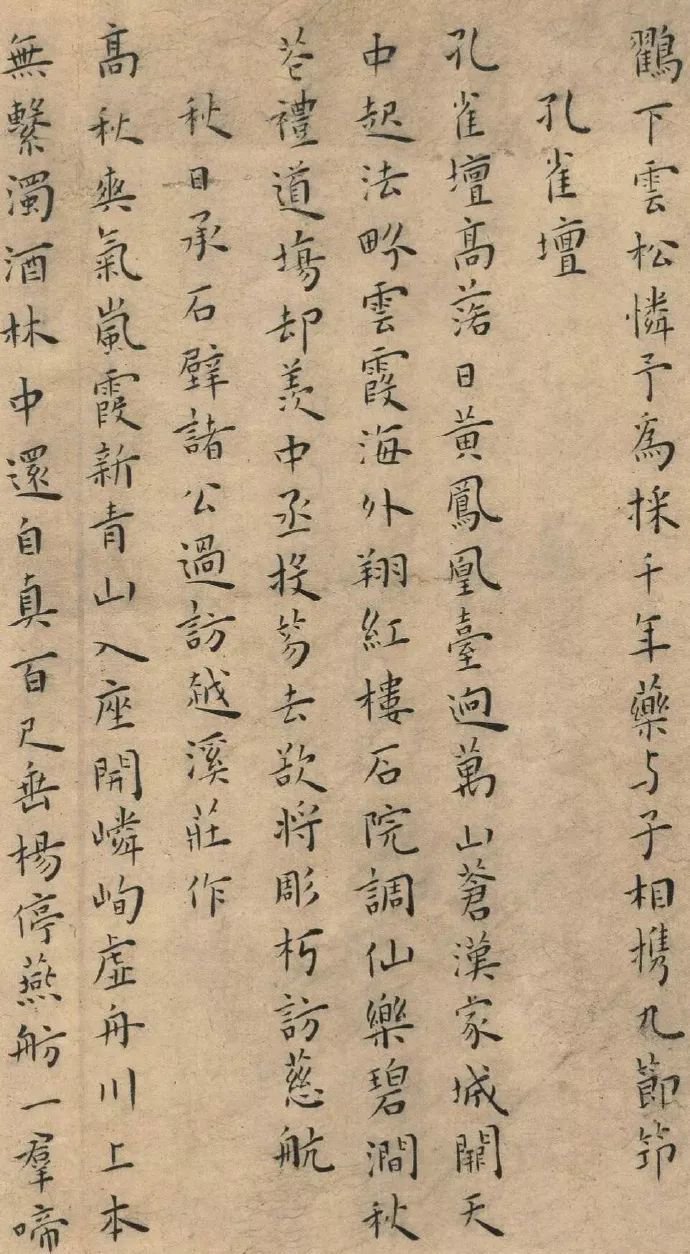 鸛下雲松憐予為採千年藥与子相攜九節笻
孔雀壇
孔雀壇高落日黃鳳凰臺逈萬山蒼漢家城闕天
中起法界雲霞海外翔紅樓石院調仙樂碧澗秋
花禮道場却羨中丞投笏去欲將彫朽訪慈航
秋日承石壁諸公過訪越溪莊作
高秋爽氣嵐霞新青山入座開嶙峋虛舟川上本
無繫濁酒林中還自真百尺垂楊停燕舫一羣啼